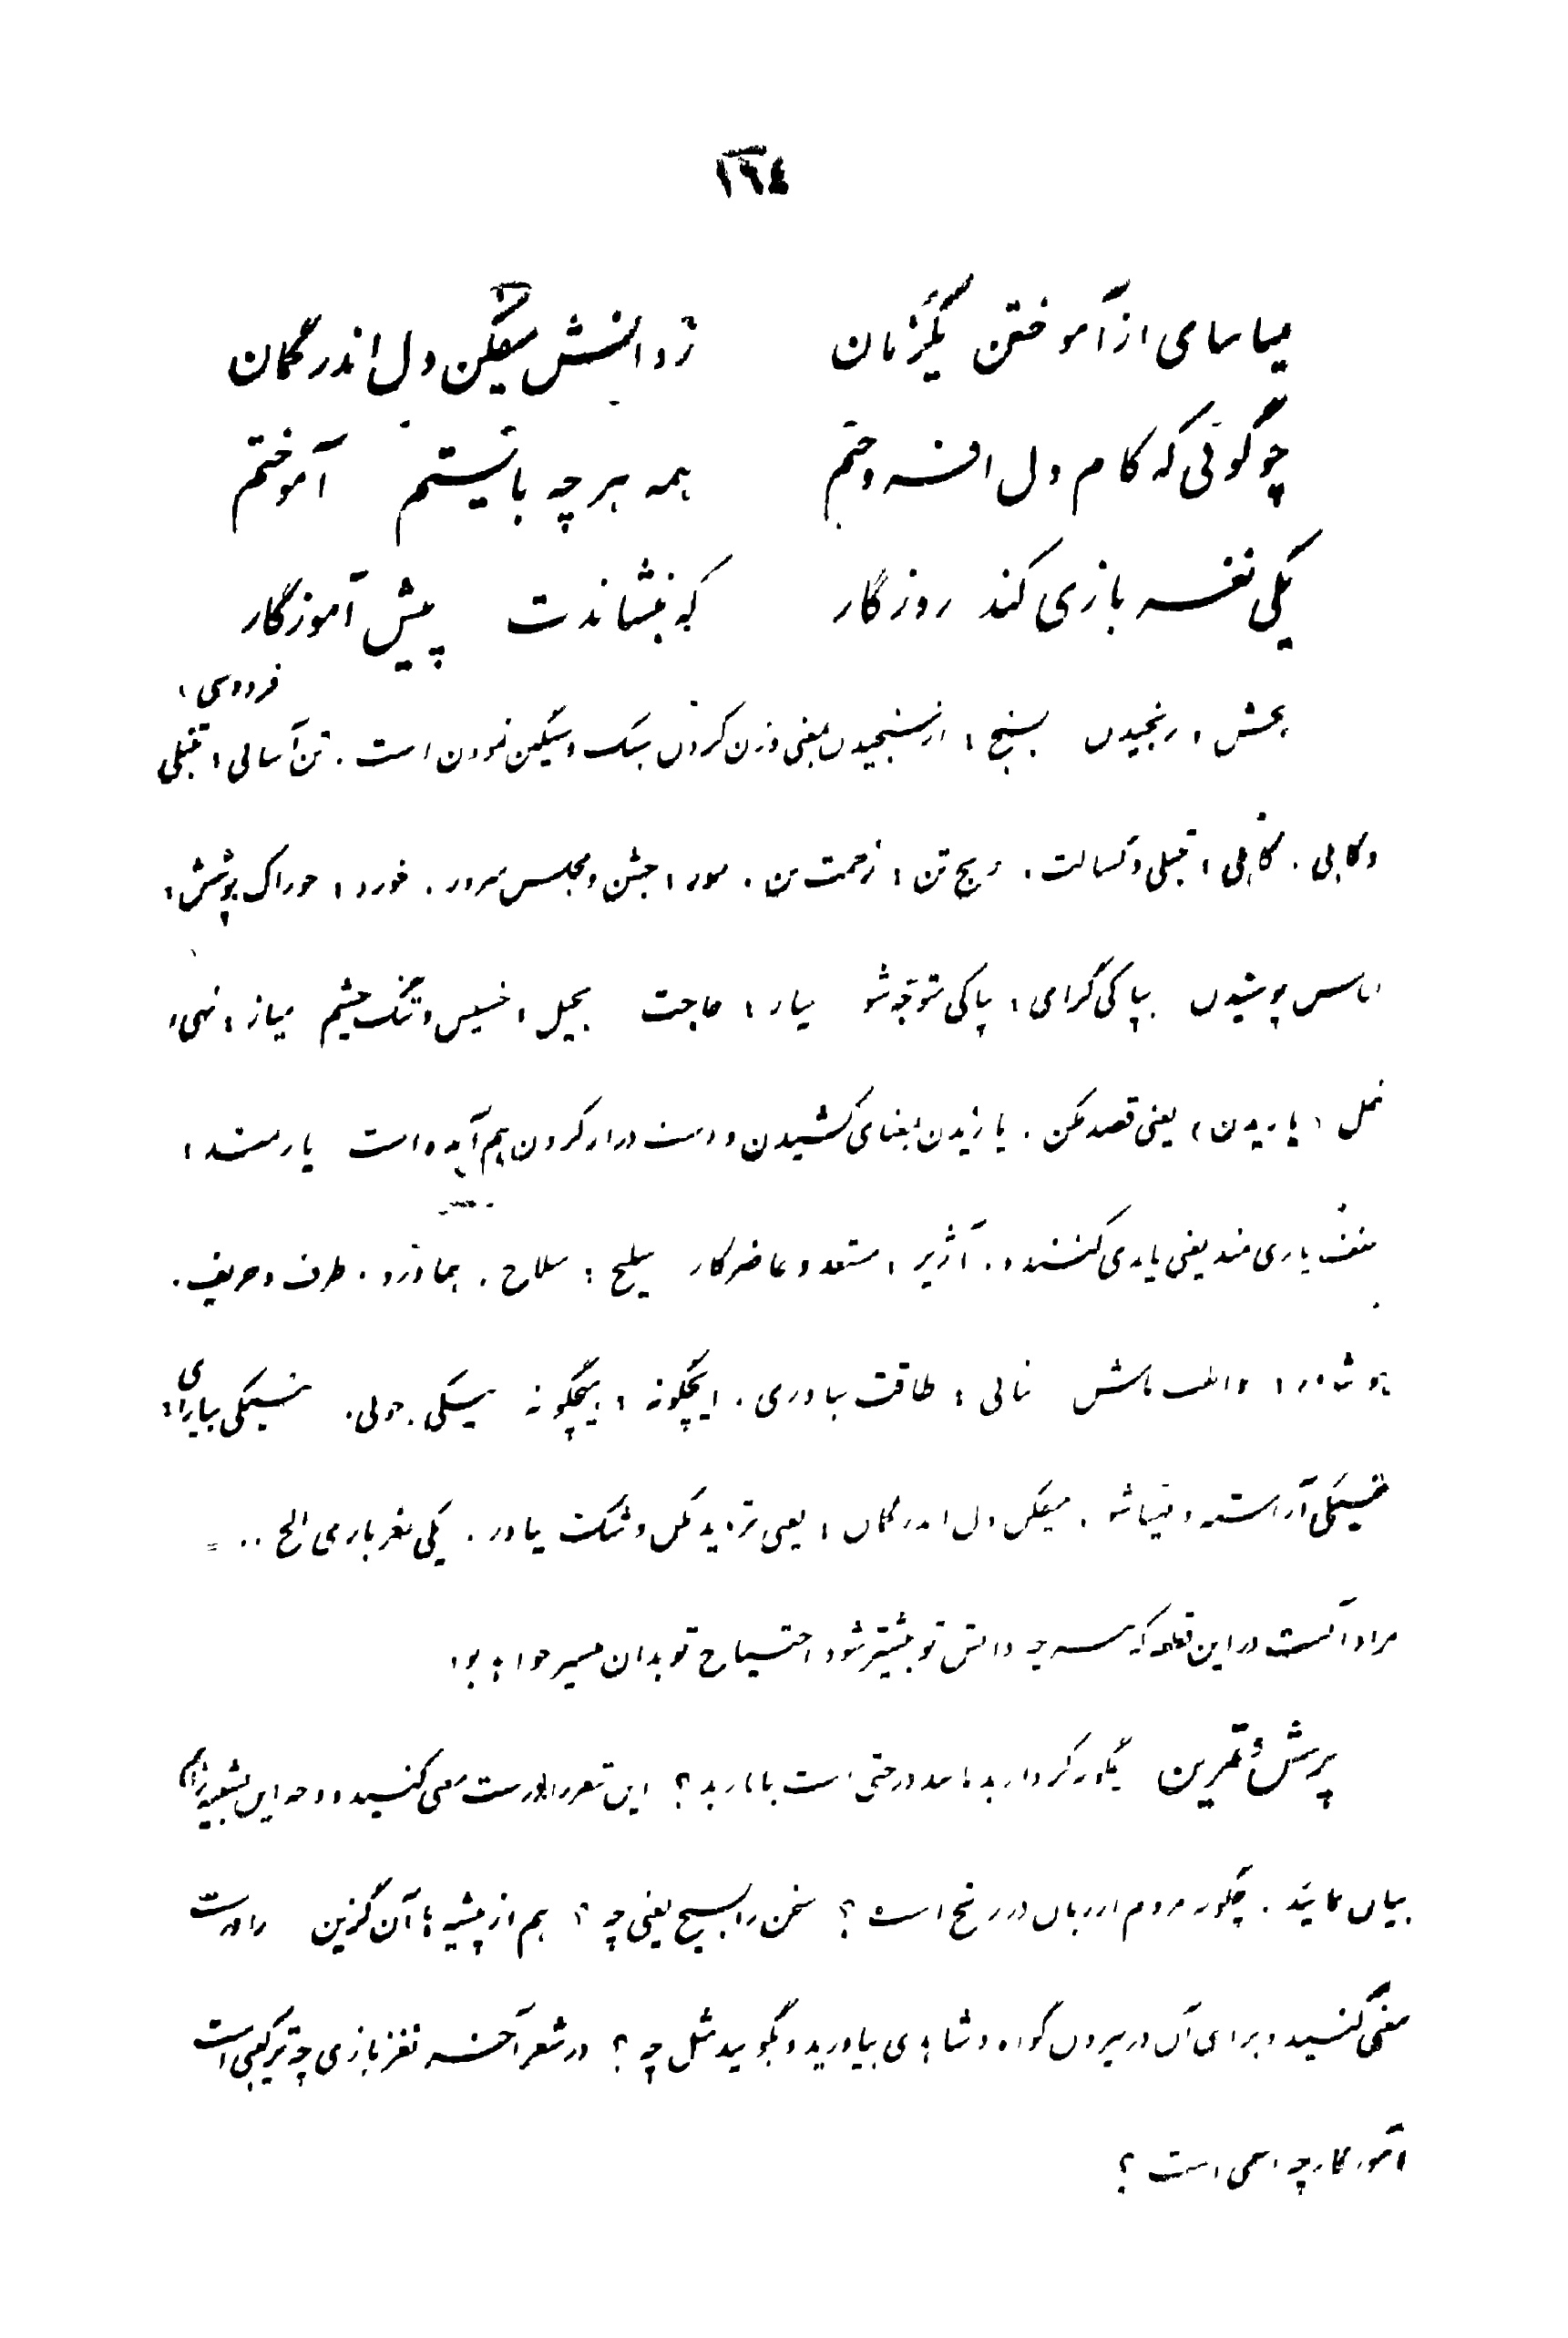 ١٦٤
میاسای از آموختن یکزمان ز دانش میفکن دل اندر گمان
چو گوئی که کام دل افروختم همه هر چه بایستم آموختم
یکی نغز بازی کند روزگار که بنشاندت پیش آموزگار
فردوسی
رنجیدن بسنج : از سنجیدن بمعنی وزن کردن سبک و سنگین نمودن است . تن آسانی : تنبلی
و کاهلی . کاهلی : تنبلی و کسالت . رنج تن : زحمت تن . سور : جشن و مجلس سرور . خورد : خوراک پوشش :
لباس پوشیدن بپاکی گرای : پاکی متوجه شو نیاز : حاجت بخیل : خسیس و تنگ چشم میاز : نهی
یعنی قصد مکن . یازیدن بمعنای کشیدن و دست دراز کردن هم آمده است یارمند :
مخفف یاری مند یعنی یاری کننده . آژیر : مستعد و حاضر کار سلیح : سلاح . هماورد . طرف و حریف .
طاقت بیاوری . ایچگونه : هیچگونه
آراسته و مهیا شو . میفکن دل اندر گمان : یعنی تردید مکن و شک میاور . یکی نغز بازی الخ ..
مراد آنست در این که هر چه دانش تو بیشتر شود احتیاج تو بدان بیشتر خواهد بود
پرسش و تمرین است با بار بد ؟ این شعر را درست معنی کنید و وجه این تشبیه را
بیان نمائید . چگونه مردم از زبان در رنج است ؟ سخن را بسنج یعنی چه ؟ هم از پیشه ها آن گزین را درست
معنی کنید و برای آن در بیرون گواه و شاهدی بیاورید و بگویید مثل چه ؟ در شعر آخر نغز بازی چه ترکیبی است
آموزگار چه اسمی است ؟